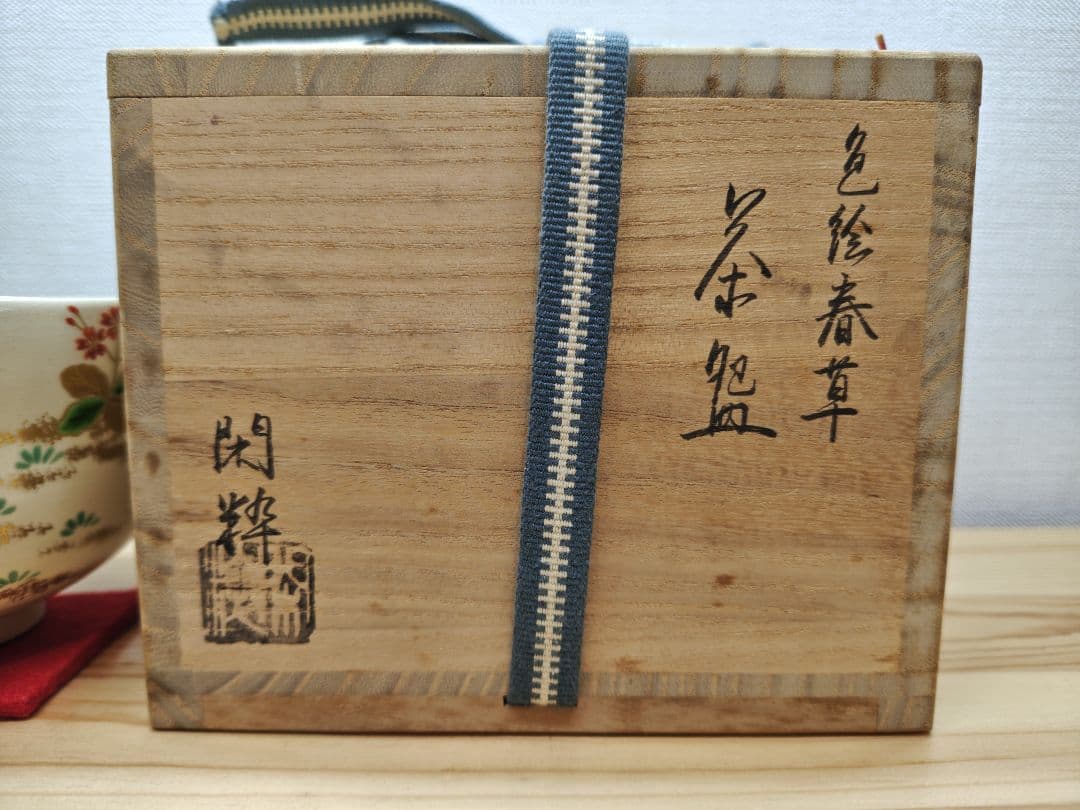 色絵春草
茶盌
閑粋